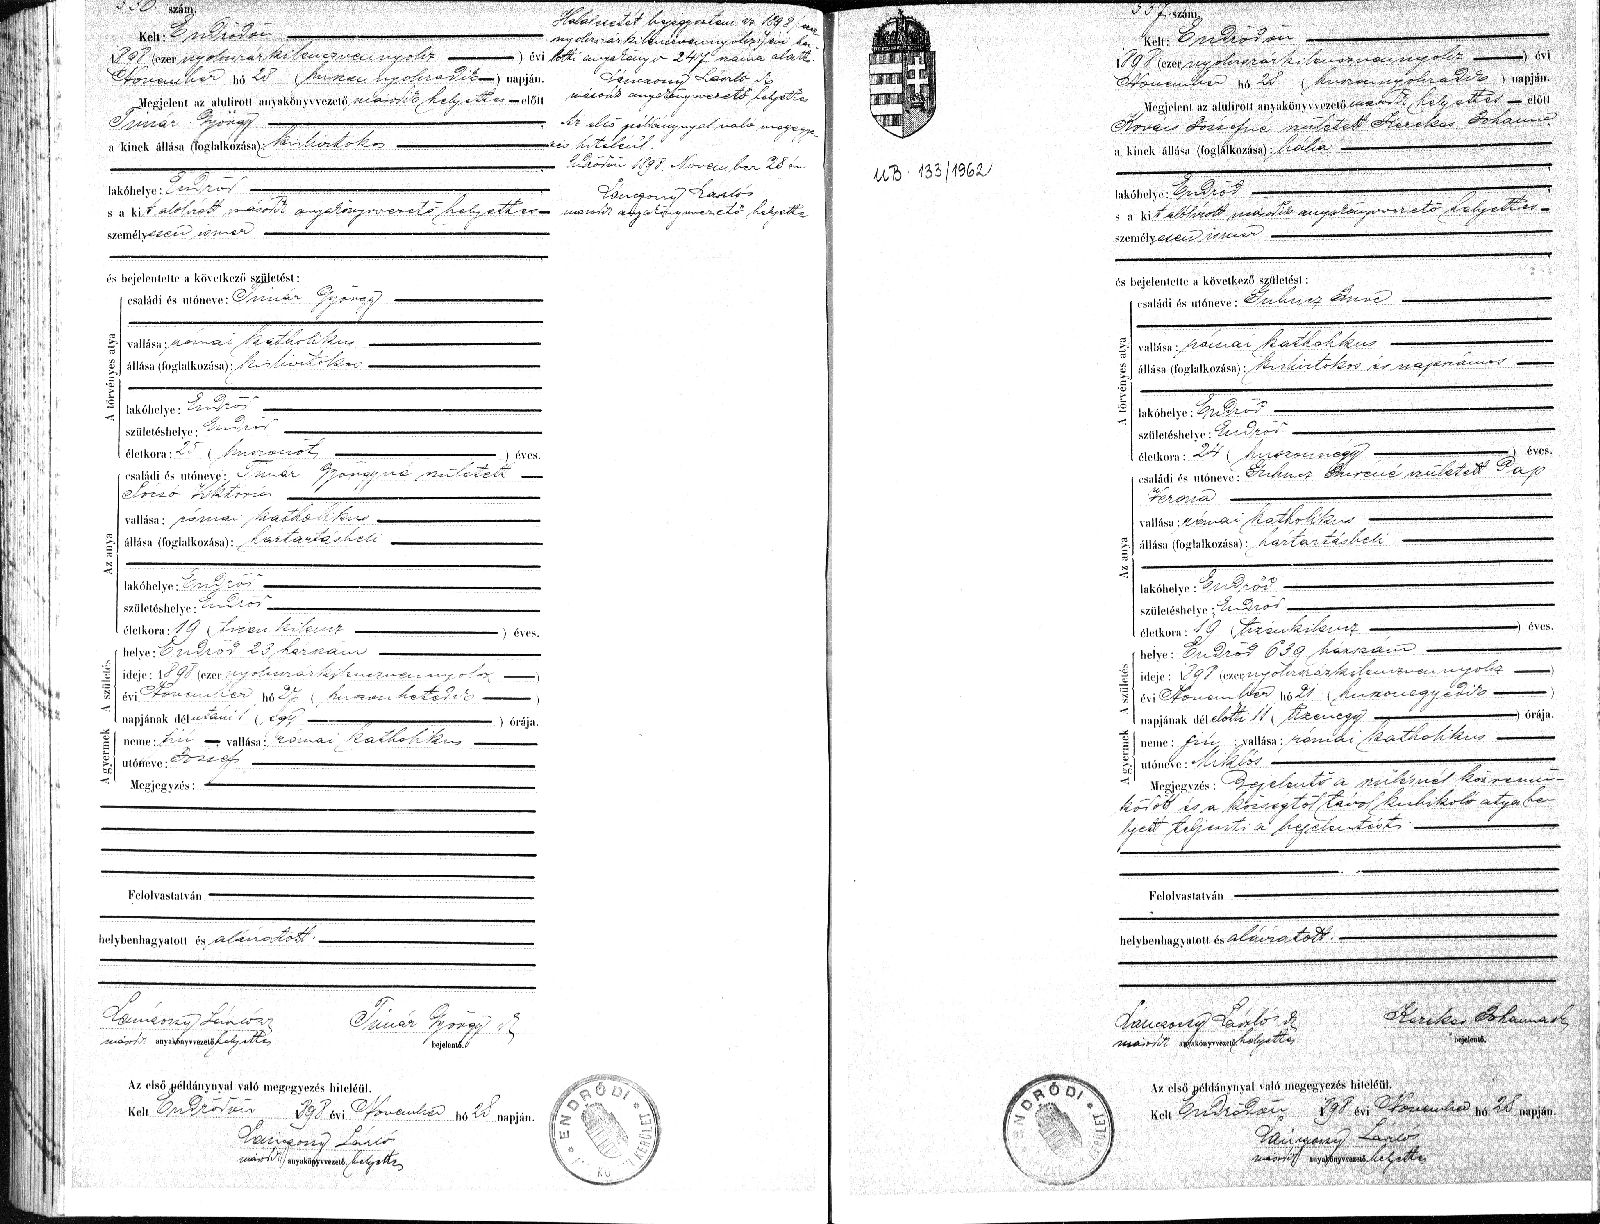 szám.
Kelt: Endrődön
1898 (ezer nyolcszázkilenczvennyolcz) évi
November hó 28 (huszonnyolcadik) napján.
Megjelent az alulirott anyakönyvvezető második helyettes előtt
Timár György
a kinek állása (foglalkozása): kisbirtokos
lakóhelye: Endrőd
s a kit alólírott második anyakönyvvezető helyettes
személyesen ismer
és bejelentette a következő születést:
A törvényes atya
családi és utóneve: Timár György
vallása: római katholikus
állása (foglalkozása): kisbirtokos
lakóhelye: Endrőd
születéshelye: Endrőd
életkora: 25 (huszonöt) éves.
Az anya
családi és utóneve: Timár Györgyné született
Viktoria
vallása: római katholikus
állása (foglalkozása): háztartásbeli
lakóhelye: Endrőd
születéshelye: Endrőd
életkora: 19 (tizenkilencz) éves.
A születés
helye: Endrőd 23 házszám
ideje: 1898 (ezer nyolcszázkilenczvennyolcz)
évi November hó 27 (huszonhetedik)
napjának délutáni 1 (egy) órája.
A gyermek
neme: fiú vallása: római katholikus
utóneve: József
Megjegyzés:
Felolvastatván
helybenhagyatott és aláiratott.
László
másodh anyakönyvvezető helyettes
Timár György
bejelentő.
Az első példánynyal való megegyezés hiteléül.
Kelt Endrődön 1898 évi November hó 28 napján.
László
másodh anyakönyvvezető helyettes
ENDRŐDI
Halálesetét bejegyeztem az 1898 ezer
nyolcszázkilenczvennyolcz évi ha-
lotti anyakönyv 247 száma alatt.
László
második anyakönyvvezető helyettes
Az első példánynyal való megegye-
zés hiteléül.
Endrődön 1898. November 28 án
László
második anyakönyvvezető helyettes
UB. 133/1962
557. szám.
Kelt: Endrődön
1898 (ezer nyolcszázkilenczvennyolcz) évi
November hó 28 (huszonnyolcadik) napján.
Megjelent az alulirott anyakönyvvezető második helyettes előtt
Kovács Józsefné született Kerekes Johanna
a kinek állása (foglalkozása): bába
lakóhelye: Endrőd
s a kit alólírott második anyakönyvvezető helyettes
személyesen ismer
és bejelentette a következő születést:
A törvényes atya
családi és utóneve: Gubucz Imre
vallása: római katholikus
állása (foglalkozása): kisbirtokos és napszámos
lakóhelye: Endrőd
születéshelye: Endrőd
életkora: 24 (huszonnégy) éves.
Az anya
családi és utóneve: Gubucz Imréné született Pap
Verona
vallása: római katholikus
állása (foglalkozása): háztartásbeli
lakóhelye: Endrőd
születéshelye: Endrőd
életkora: 19 (tizenkilencz) éves.
A születés
helye: Endrőd 639 házszám
ideje: 1898 (ezer nyolcszázkilenczvennyolcz)
évi November hó 21 (huszonegyedik)
napjának délelőtti 11 (tizenegy) órája.
A gyermek
neme: fiú; vallása: római katholikus
utóneve: Miklós
Megjegyzés: Bejelentő a szülésnél közremű-
ködött és a községtől távol kubikoló atya he-
lyett teljesíti a bejelentést
Felolvastatván
helybenhagyatott és aláiratott.
László
másodh anyakönyvvezető helyettes
Kerekes Johanna
bejelentő.
Az első példánynyal való megegyezés hiteléül.
Kelt Endrődön 1898 évi November hó 28 napján.
László
másodh anyakönyvvezető helyettes
ENDRŐDI